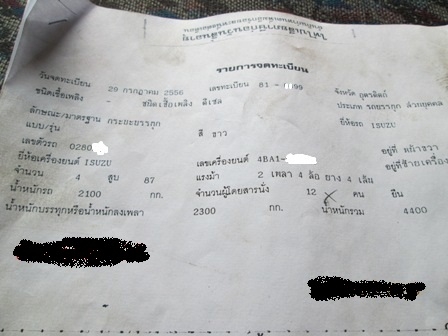 รายการจดทะเบียน
วันจดทะเบียน 29 กรกฎาคม 2556 เลขทะเบียน 81 - 99 จังหวัด อุตรดิตถ์
ชนิดเชื้อเพลิง - ชนิดเชื้อเพลิง ดีเซล ประเภท รถบรรทุก ส่วนบุคคล
ลักษณะ/มาตรฐาน กระบะบรรทุก ยี่ห้อรถ ISUZU
แบบ/รุ่น สี ขาว
เลขตัวรถ 0280 อยู่ที่ หน้าขวา
ยี่ห้อเครื่องยนต์ ISUZU เลขเครื่องยนต์ 4BA1- อยู่ที่ ซ้ายเครื่อง
จำนวน 4 สูบ 87 แรงม้า 2 เพลา 4 ล้อ ยาง 4 เส้น
น้ำหนักรถ 2100 กก. จำนวนผู้โดยสารนั่ง 12 คน ยืน
น้ำหนักบรรทุกหรือน้ำหนักลงเพลา 2300 กก. น้ำหนักรวม 4400